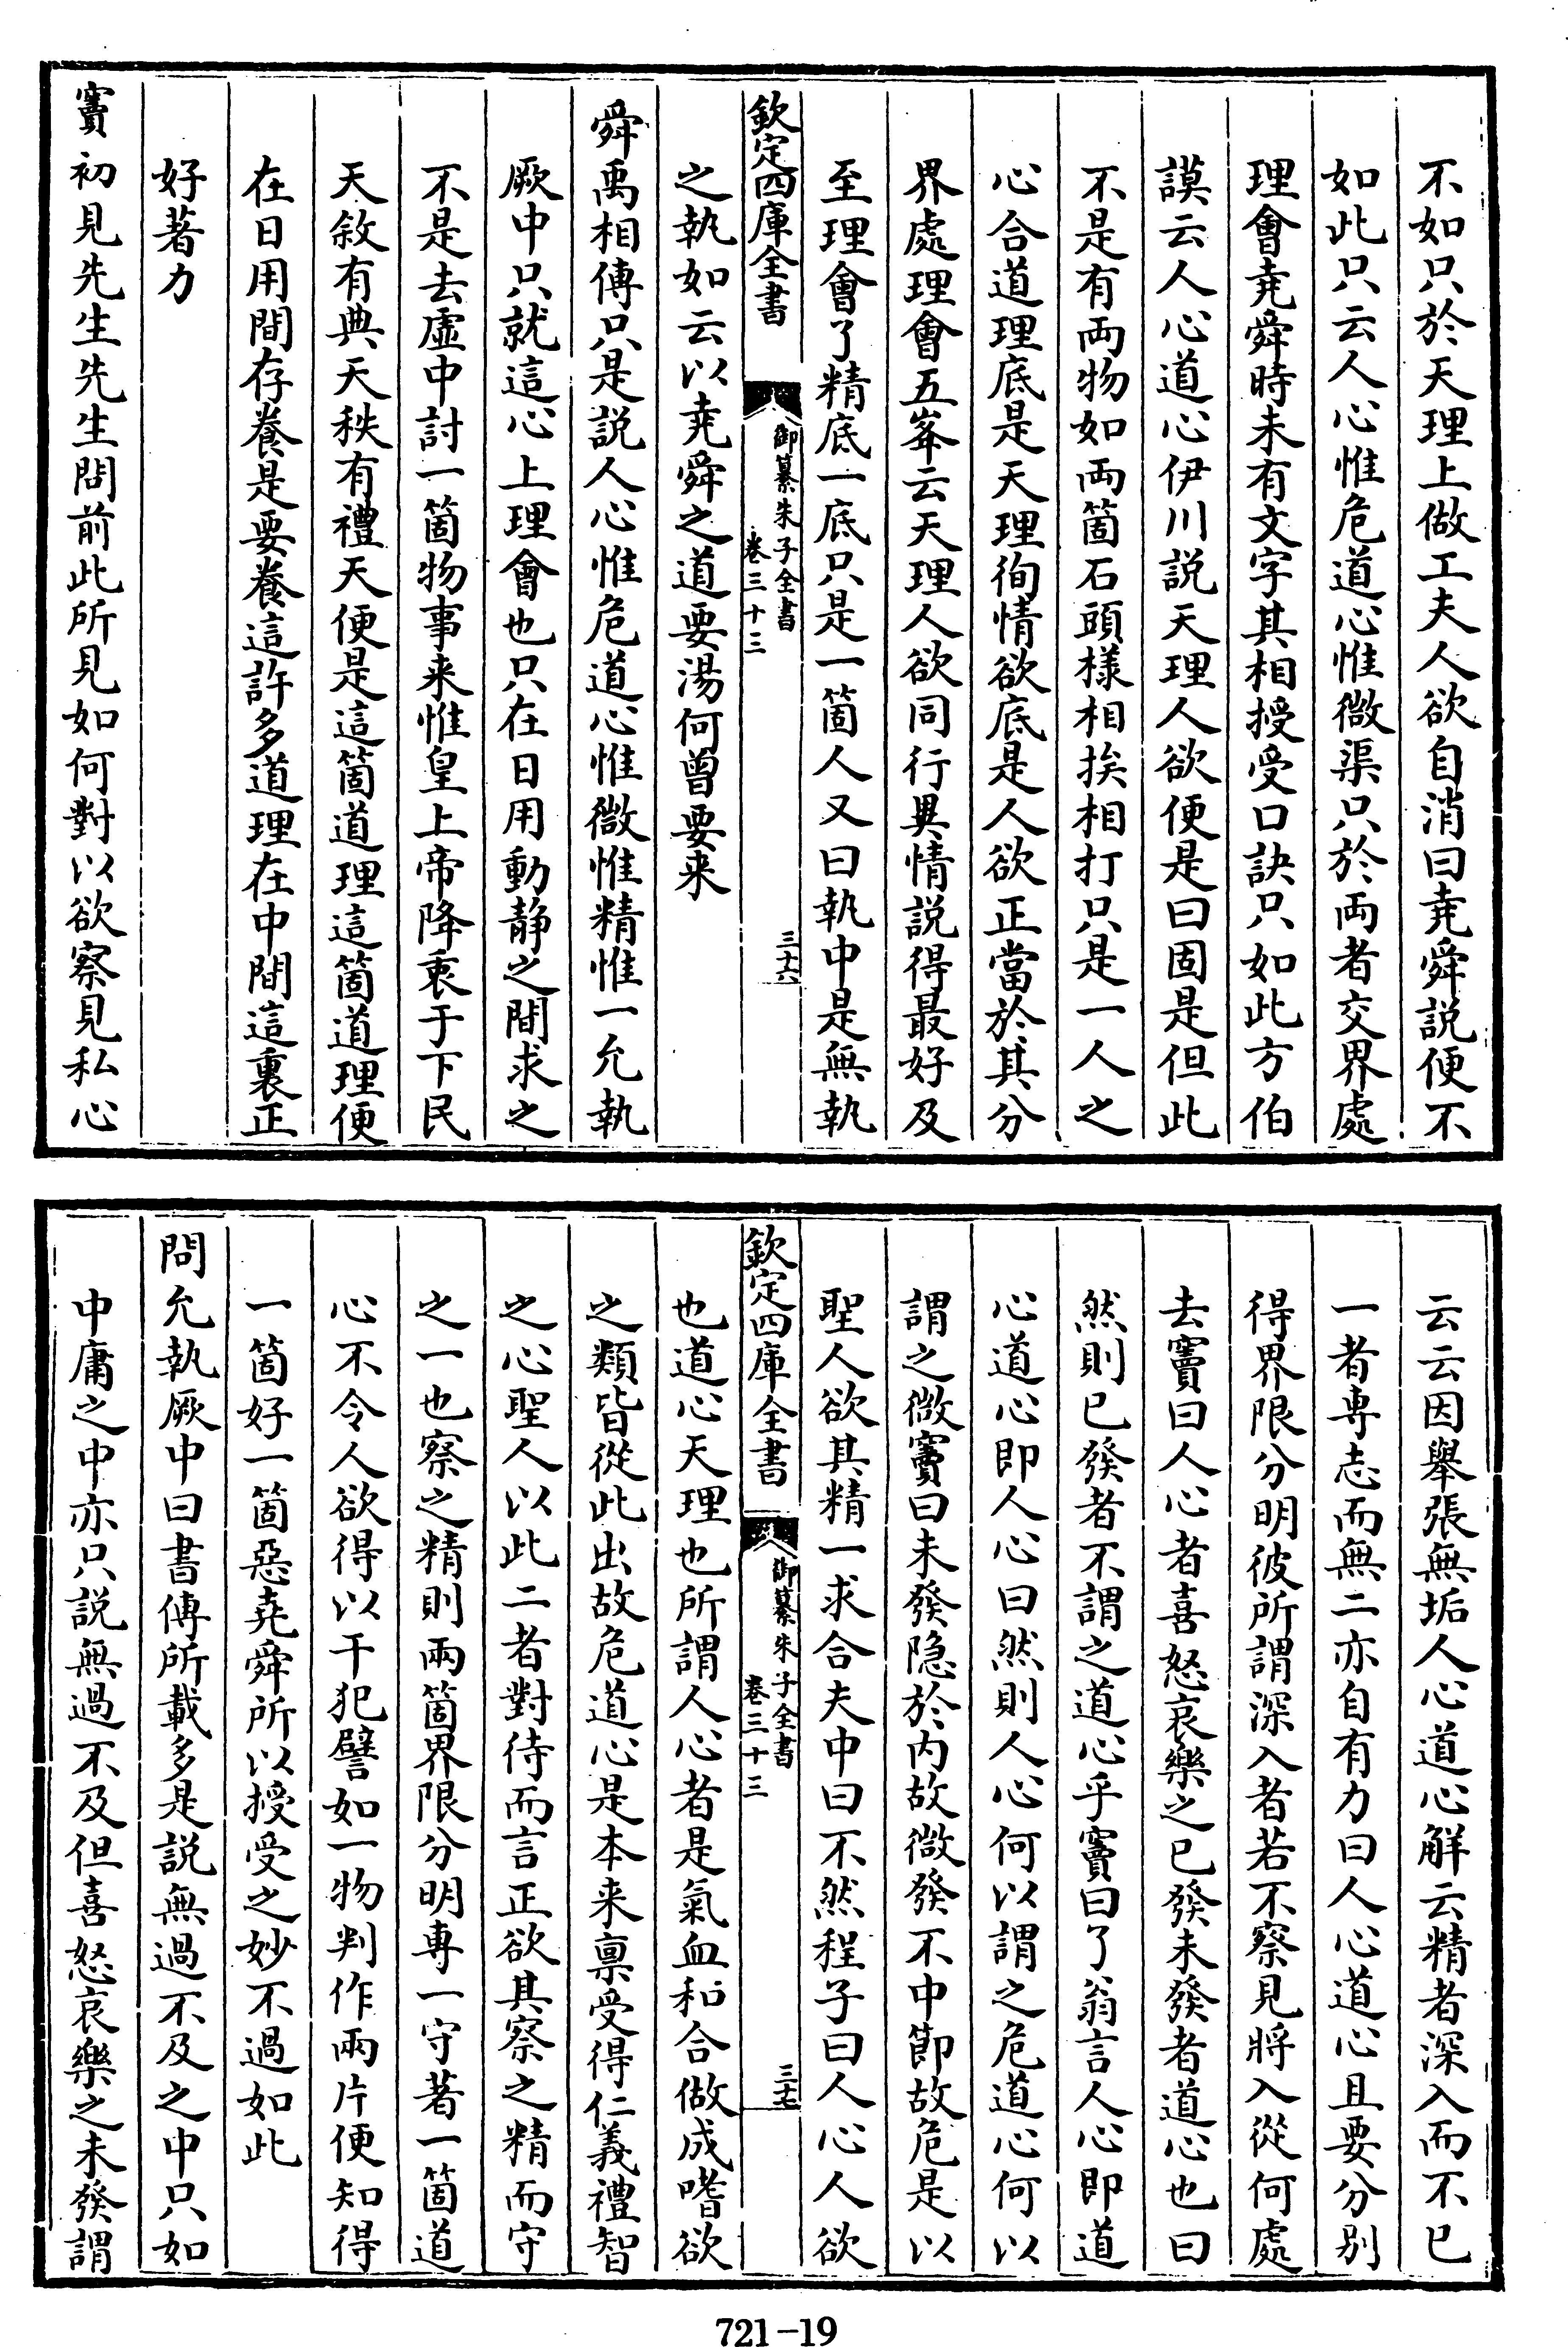 不如只於天理上做工夫人欲自消曰堯舜説便不
如此只云人心惟危道心惟微渠只於兩者交界處
理會堯舜時未有文字其相授受口訣只如此方伯
謨云人心道心伊川説天理人欲便是曰固是但此
不是有兩物如兩箇石頭樣相挨相打只是一人之
心合道理底是天理徇情欲底是人欲正當於其分
界處理會五峯云天理人欲同行異情説得最好及
至理會了精底一底只是一箇人又曰執中是無執
欽定四庫全書
御纂朱子全書
卷三十三
三十六
之執如云以堯舜之道要湯何曾要来
舜禹相傳只是説人心惟危道心惟微惟精惟一允執
厥中只就這心上理會也只在日用動静之間求之
不是去虚中討一箇物事来惟皇上帝降衷于下民
天敘有典天秩有禮天便是這箇道理這箇道理便
在日用間存養是要養這許多道理在中間這裏正
好著力
竇初見先生先生問前此所見如何對以欲察見私心
云云因舉張無垢人心道心解云精者深入而不已
一者専志而無二亦自有力曰人心道心且要分别
得界限分明彼所謂深入者若不察見將入從何處
去竇曰人心者喜怒哀樂之已發未發者道心也曰
然則已發者不謂之道心乎竇曰了翁言人心即道
心道心即人心曰然則人心何以謂之危道心何以
謂之微竇曰未發隐於内故微發不中節故危是以
聖人欲其精一求合夫中曰不然程子曰人心人欲
欽定四庫全書
御纂朱子全書
卷三十三
三十七
也道心天理也所謂人心者是氣血和合做成嗜欲
之類皆從此出故危道心是本来禀受得仁義禮智
之心聖人以此二者對待而言正欲其察之精而守
之一也察之精則兩箇界限分明専一守著一箇道
心不令人欲得以干犯譬如一物判作兩片便知得
一箇好一箇惡堯舜所以授受之妙不過如此
問允執厥中曰書傳所載多是説無過不及之中只如
中庸之中亦只説無過不及但喜怒哀樂之未發謂
721-19